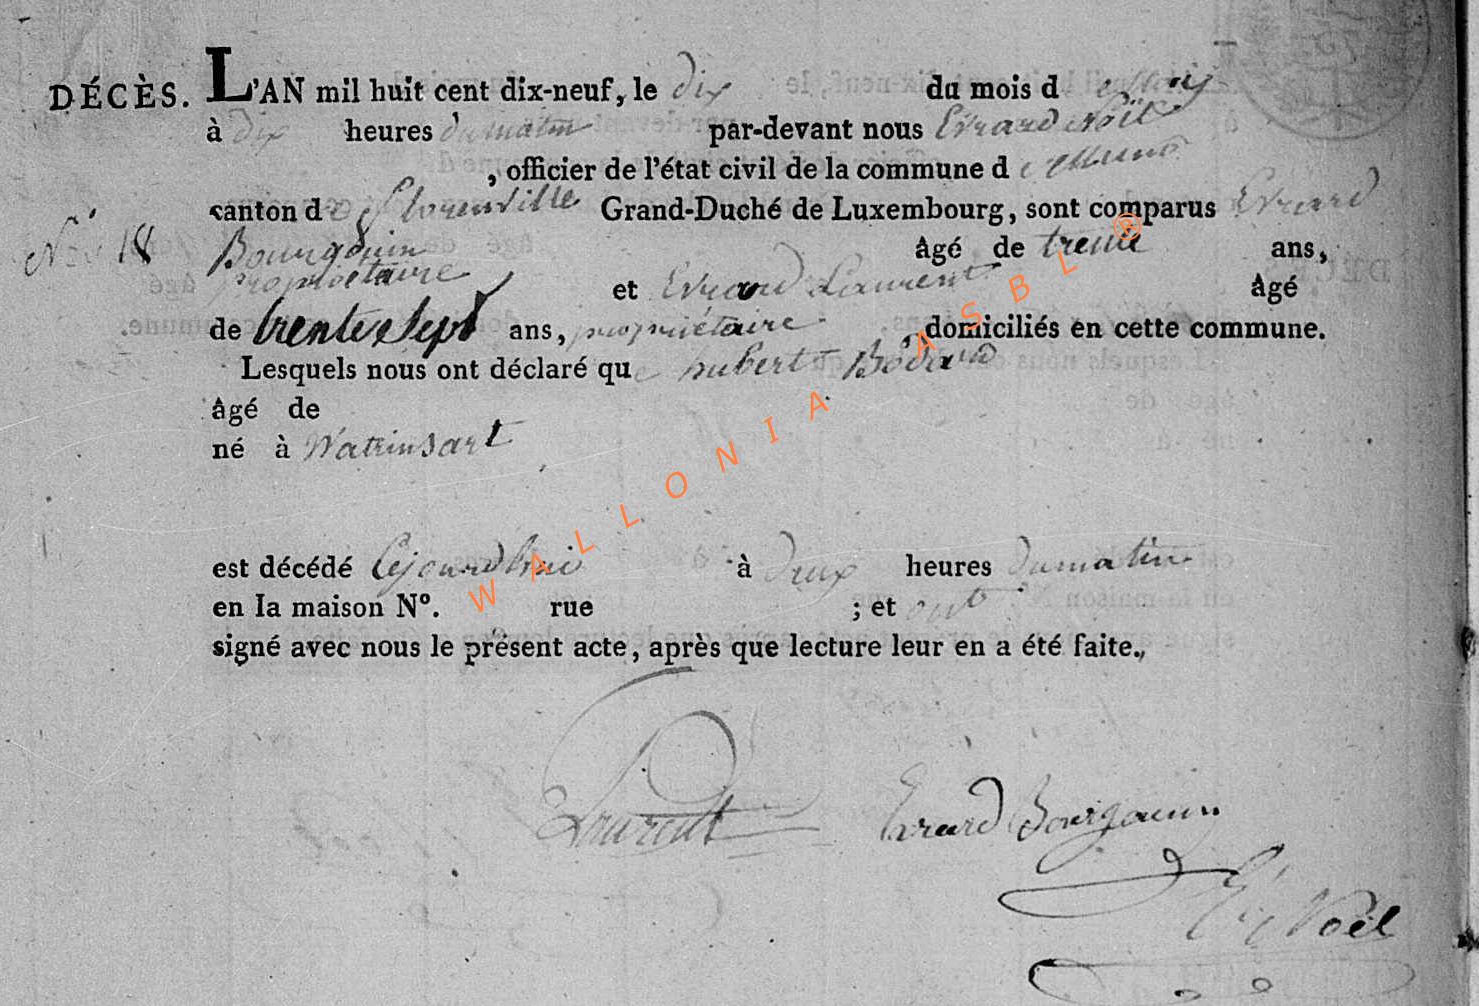 DÉCÈS. L'AN mil huit cent dix-neuf, le dix du mois d e Mai
à dix heures du matin par-devant nous Evrard Noël
, officier de l'état civil de la commune d e Muno
canton de Florenville Grand-Duché de Luxembourg, sont comparus Evrard
No. 18 Bourgouin âgé de trente ans,
propriétaire et Evrard Laurent âgé
de trente sept ans, propriétaire domiciliés en cette commune.
Lesquels nous ont déclaré que hubert Bodard
âgé de
né à Watrinsart
est décédé cejourdhui à deux heures du matin
en la maison No. rue ; et ont
signé avec nous le présent acte, après que lecture leur en a été faite.
Laurent Evrard Bourgouin
Noël
WALLONIA ASBL ®